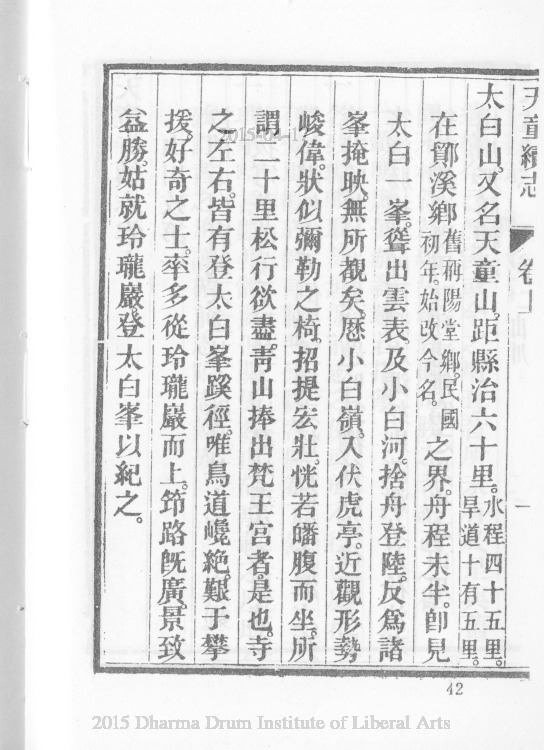 天童續志 卷上 一
太白山。又名天童山。距縣治六十里。水程四十五里。旱道十有五里。
在鄮溪鄉舊稱陽堂鄉。民國初年。始改今名。之界。舟程未半。卽見
太白一峯。聳出雲表。及小白河。捨舟登陸。反爲諸
峯掩映。無所覩矣。歷小白嶺。入伏虎亭。近觀形勢
峻偉。狀似彌勒之椅。招提宏壯。恍若皤腹而坐。所
謂二十里松行欲盡。靑山捧出梵王宫者。是也。寺
之左右。皆有登太白峯蹊徑。唯鳥道巉絶。艱于攀
援。好奇之士。率多從玲瓏巖而上。筇路旣廣。景致
益勝。姑就玲瓏巖登太白峯以紀之。
42
2015 Dharma Drum Institute of Liberal Arts